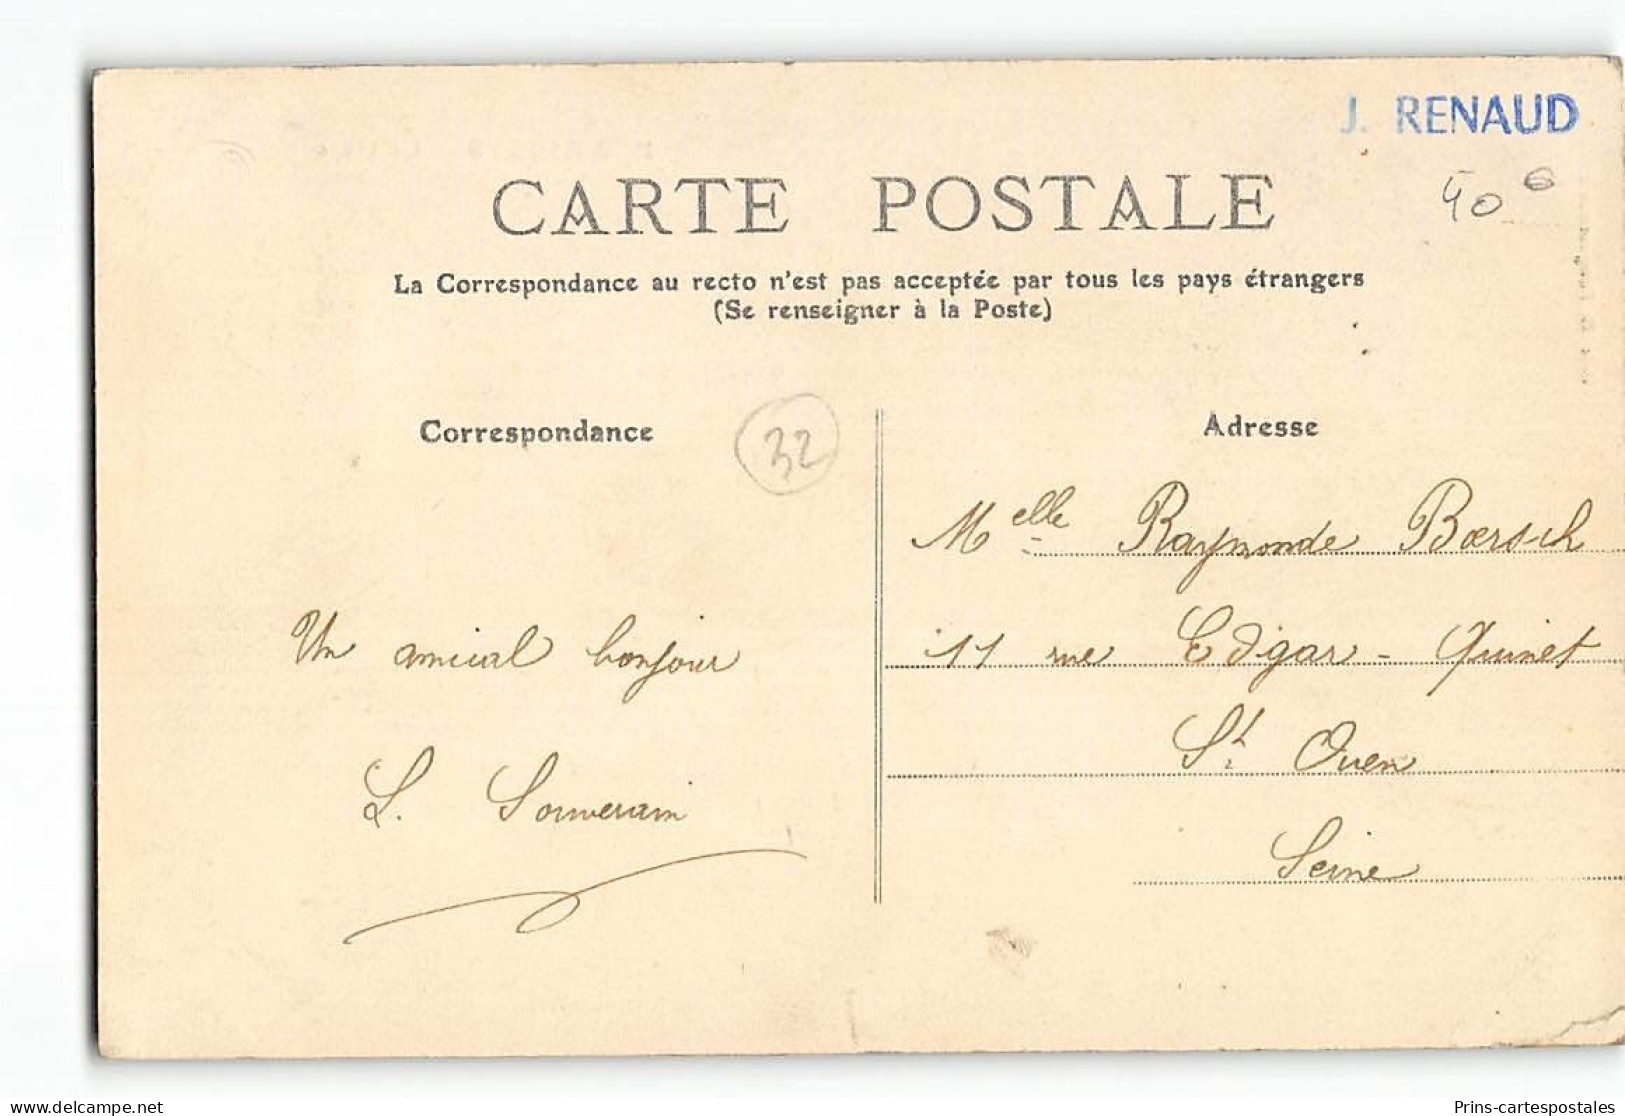 J. RENAUD
40 6
CARTE POSTALE
La Correspondance au recto n'est pas acceptée par tous les pays étrangers
(Se renseigner à la Poste)
Correspondance
32
Un amical bonjour
L. Souverain
Adresse
Melle Raymonde Bœrsch
11 rue Edgar-Quinet
St Ouen
Seine
www.delcampe.net
Prins-cartespostales